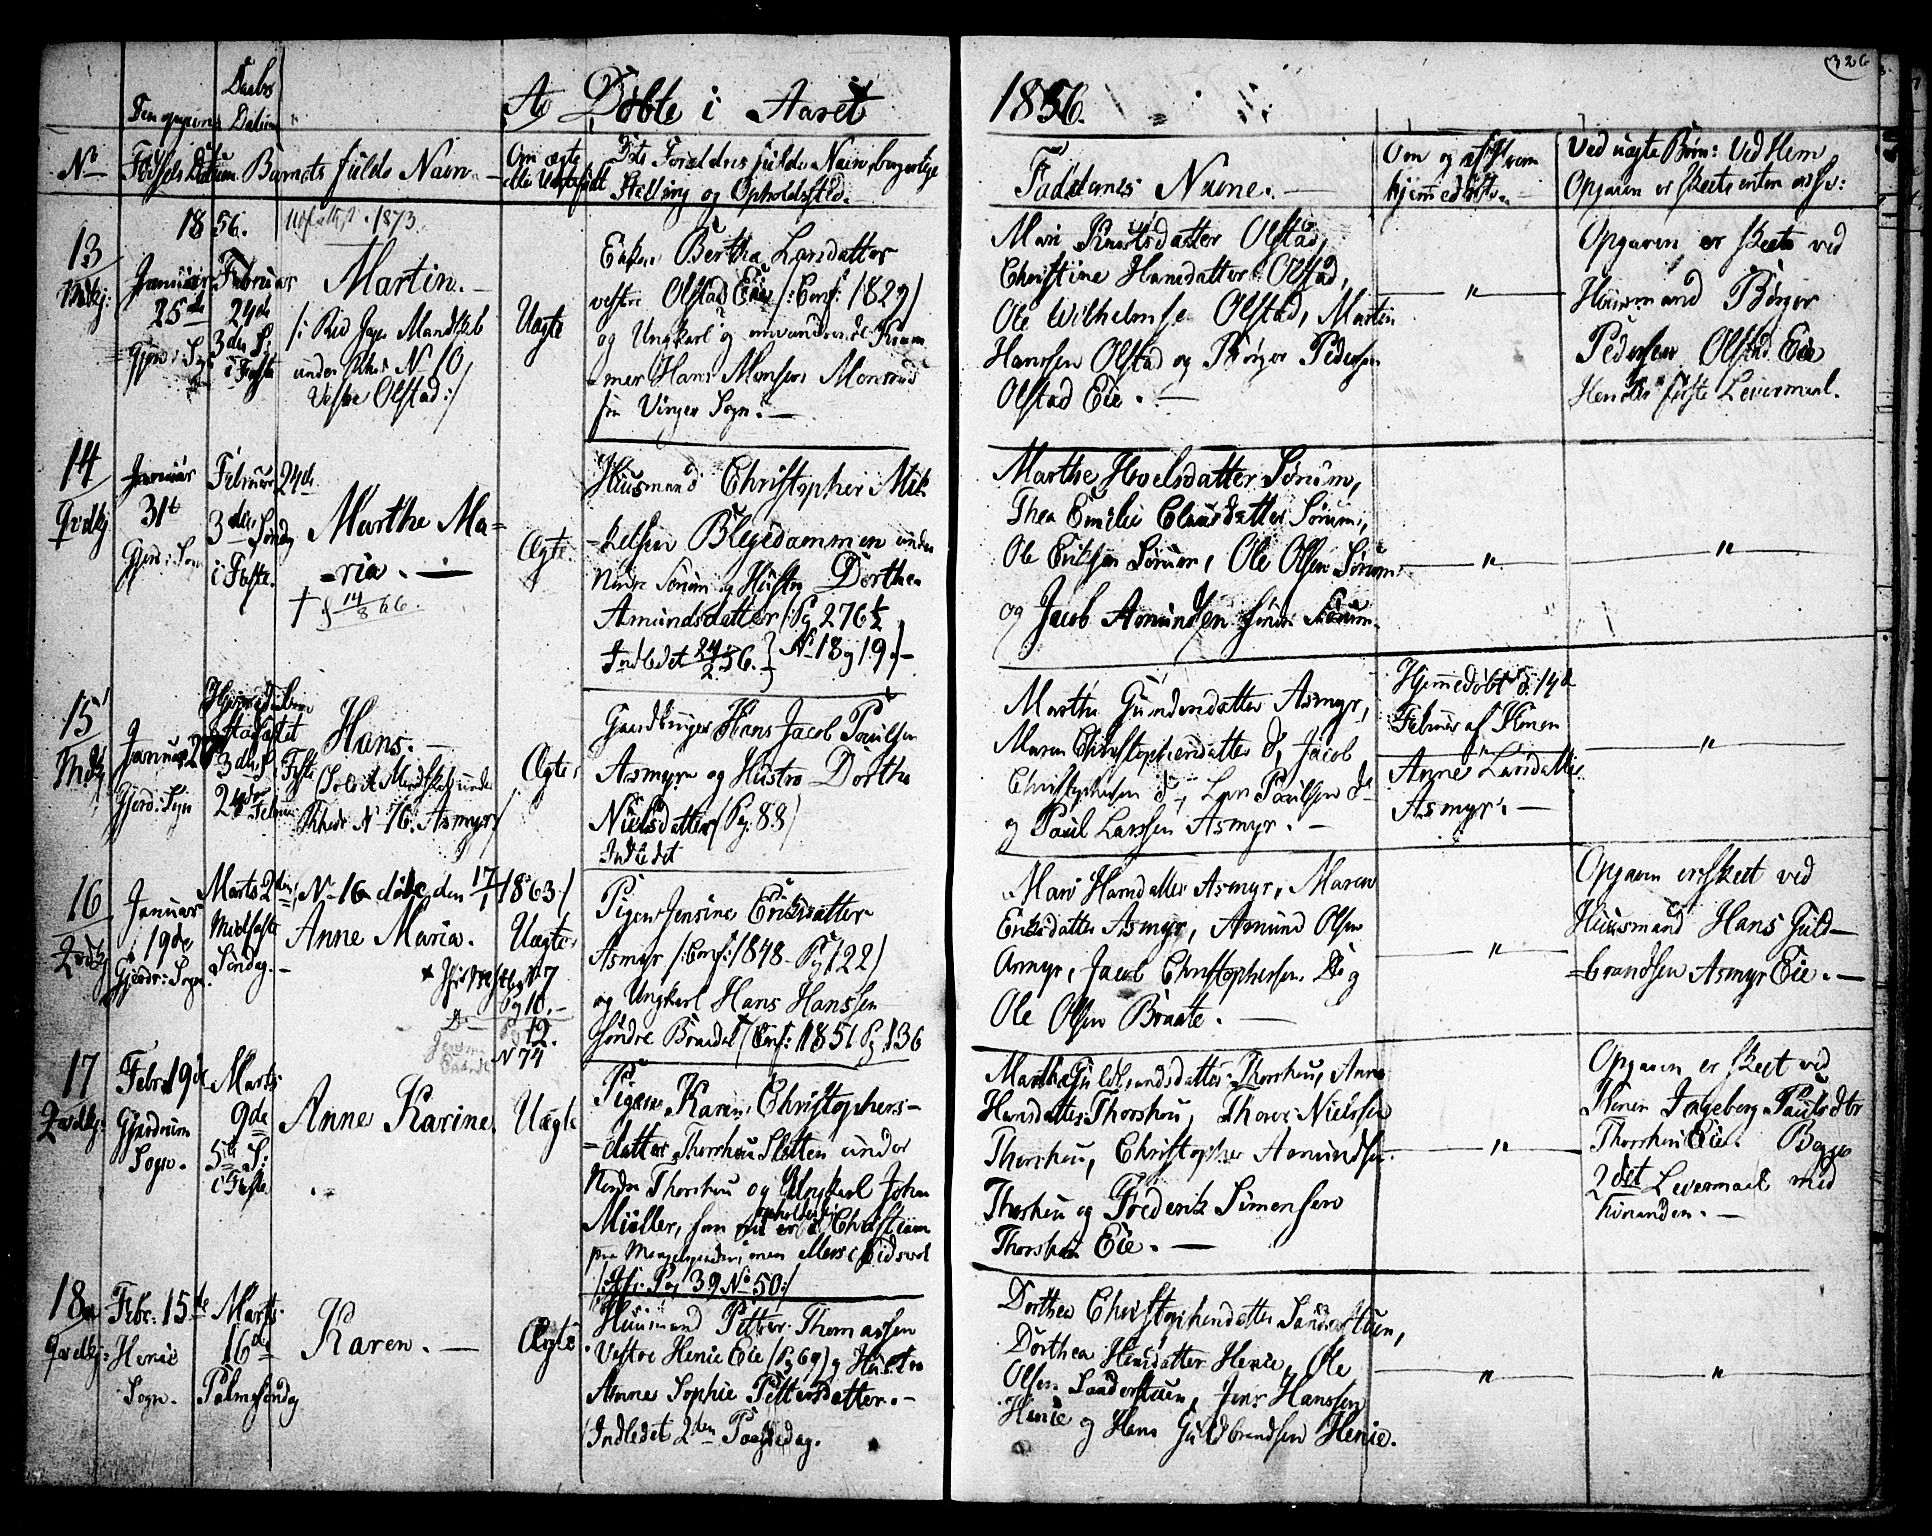 326
A. Døbte i Aaret 1856.
No
Fødsels Datum
Daabs Datum
Barnets fulde Navn
Om ægte eller Uægtefødt
Dets Forældres fulde Navn, borgerlige
Stilling og Opholdssted.
Faddernes Navne.
Om og af Hvem
hjemmedøbt
Ved uægte Børn: Ved Hem
Opgaven er skeet
1856.
1873
13
Mdkj:
Januar
25de
Gjerd: Sogn
Februar
24de
3die S:
i Faste
Martin.
under No 10
Vestre Olstad:/
Uægte
Enken Bertha Larsdatter
vestre Olstad Eie /: Conf: 1829/
og Ungkarl og omvandrende Kræm
mer Hans Monsen Monsrud
fra Vinger Sogn.
Mari Knutsdatter Olstad,
Christine Hansdatter Olstad,
Ole Wilhelmsen Olstad, Martin
Hanssen Olstad og Børger Pedersen
Olstad Eie.
"
Opgaven er skeet ved
Huusmand Børger
Pedersen Olstad Eie
Hendes første Leiermaal.
14
Qvdkj
Januar
31te
Gjerd: Sogn
Februar 24de
3die Søndag
i Faste.
Marthe Ma=
=ria.
† 14/8 66.
Ægte
Huusmand Christopher Mik
kelsen Blegedammen under
Nordre Sørum og Hustru Dorthea
Amundsdatter /: Pg 276½
Indledet 24/2 56. No 18 og 19 /
Marthe Hoelsdatter Sørum,
Thea Emilie Clausdatter Sørum,
Ole Eriksen Sørum, Ole Olsen Sørum
og Jacob Amundsen Sørum.
"
"
15
Mdkj
Januar
Gjerd: Sogn
Hjemmedaaben
stadfæstet
3die S. i Faste
24de Februar
Hans.
No 76. Asmyr/
Ægte
Gaardbruger Hans Jacob Paulsen
Asmyr og Hustru Dorthe
Nielsdatter /Pg. 88/
Indledet
Marthe Gundersdatter Asmyr,
Maren Christophersdatter d, Jacob
Christophersen d, Lars Paulsen d
og Paul Larssen Asmyr.
Hjemmedøbt d. 14d
Februar af Konen
Anne Larsdatter
Asmyr.
"
16
Qvdkj
Januar
19de
Gjerdr: Sogn.
Marts 2den
Midfaste
Søndag.
/: No 16 døde den 17/1 1863 /
Anne Maria.
Uægte
No 7
Pg 10.
Pg 12.
N 74
Pigen Jensine Eriksdatter
Asmyr /: Conf: 1848 Pg 122/
og Ungkarl Hans Hanssen
søndre /Conf: 1851 Pg. 136
Mari Hansdatter Asmyr, Maren
Eriksdatter Asmyr, Asmund Olsen
Asmyr, Jacob Christophersen Do og
Ole Olsen Braate.
"
Opgaven er skeet ved
Huusmand Hans Guld=
=brandsen Asmyr Eie.
17
Qvdkj:
Febr. 19de
Gjerdrum
Sogn.
Marts
9de
5te S:
i Faste
Anne Karine.
Uægte
Pigen Karen Christophers=
=datter Thorshou Sletten under
Nordre Thorshou og Ungkarl Johan
Müller, som nu opholder sig i Christiania
men ellers i Eidsvol
Pag 39 No 50:/
Marthe Guldbrandsdatter Thorshou, Anne
Hansdatter Thorshou, Thorer Nielssen
Thorshou, Christopher Asmundsen
Thorshou og Frederik Simensen
Thorshou Eie.
"
Opgaven er skeet ved
Konen Ingeborg Paulsdtr
Thorshou Eie. Begge
2det Leiermaal med
hinanden.
18
Qvdkj:
Febr: 15de
Henie
Sogn.
Marts
16de
Palmesøndag
Karen.
Ægte
Huusmand Petter Thomassen
Vestre Henie Eie /Pg 69/ og Hustru
Anne Sophie Pettersdatter.
Indledet 2den Paaskedag.
Dorthea Christophersdatter Sanderstuen,
Dorthea Hansdatter Henie, Ole
Olsen Sanderstuen, Jens Hanssen
Henie og Hans Guldbrandsen Henie.
"
"